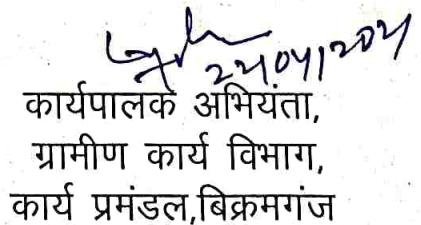 22/04/2021
कार्यपालक अभियंता,
ग्रामीण कार्य विभाग,
कार्य प्रमंडल,बिक्रमगंज